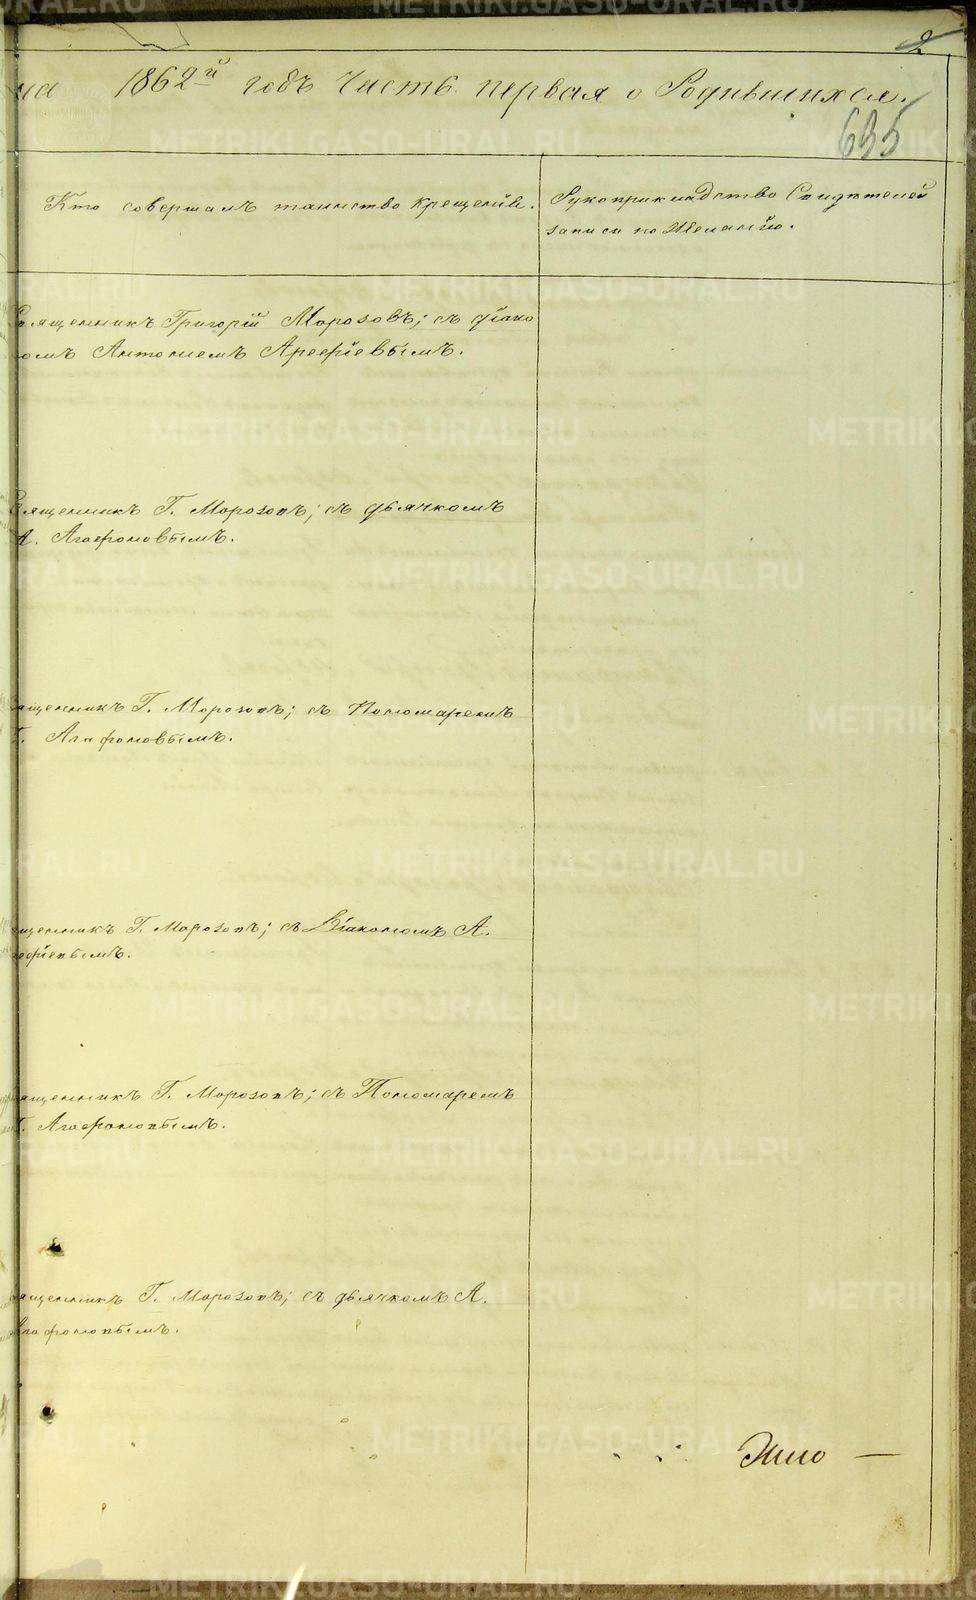 2
на 1862й годъ Часть первая о Родившихся.
635
Кто совершалъ таинство крещенія.
Рукоприкладство Свидѣтелей
записи по Желанію.
Священникъ Григорій Морозовъ; съ діако
номъ Антоніемъ Арефіевымъ.
Священникъ Г. Морозовъ; съ дьячкомъ
А. Агафоновымъ.
ященникъ Г. Морозовъ; съ Пономаремъ
Г. Агафоновымъ.
щенникъ Г. Морозовъ; съ Діакономъ А.
рефіевымъ.
ященникъ Г. Морозовъ; съ Пономаремъ
Г. Агафоновымъ.
ященникъ Г. Морозовъ; съ дьячкомъ А.
Агафоновымъ.
METRIKI.GASO-URAL.RU